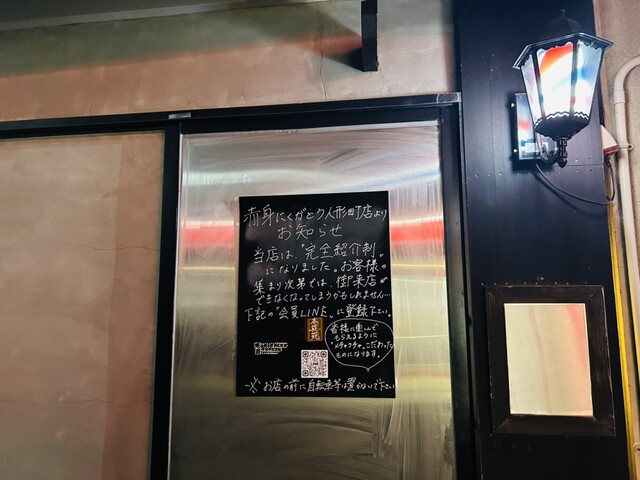 赤身にくがとう人形町店より
お知らせ
当店は、"完全紹介制"
になりました。お客様の
集まり次第では、御来店
できなくなってしまうかもしれません…
下記の"会員LINE"に登録下さい。
皆様に喜んで
もらえるように
メチャクチャ、こだわった
ものになります。
お店の前に自転車等は置かないで下さい